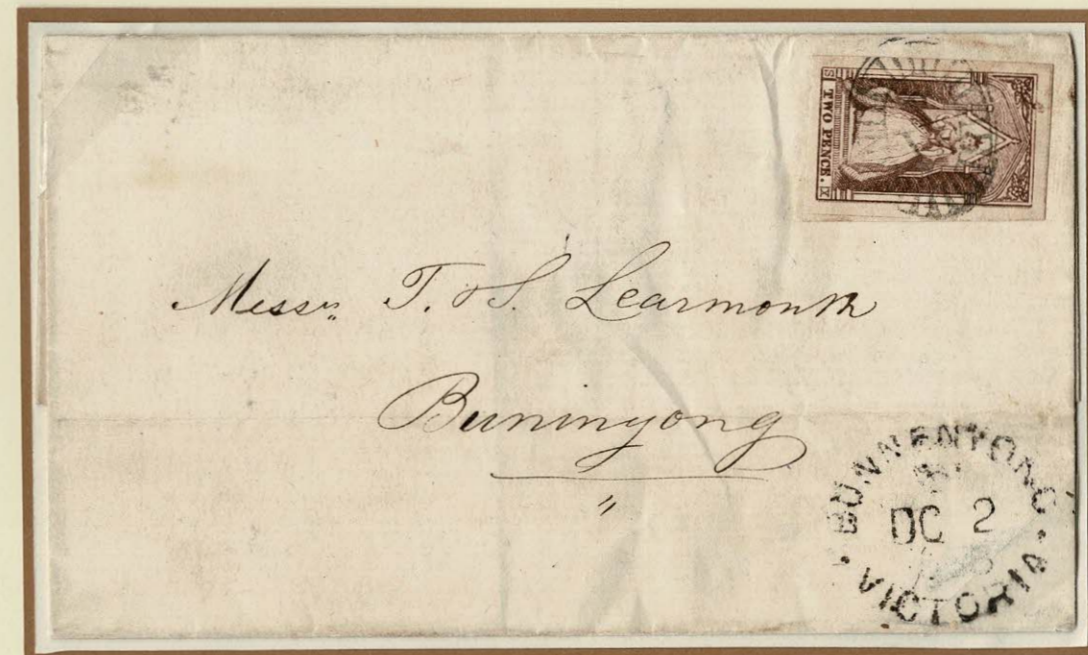 S TWO PENCE. IX
Messrs T. & S. Learmonth
Buninyong
"
BUNNENYONG
DC 2
VICTORIA